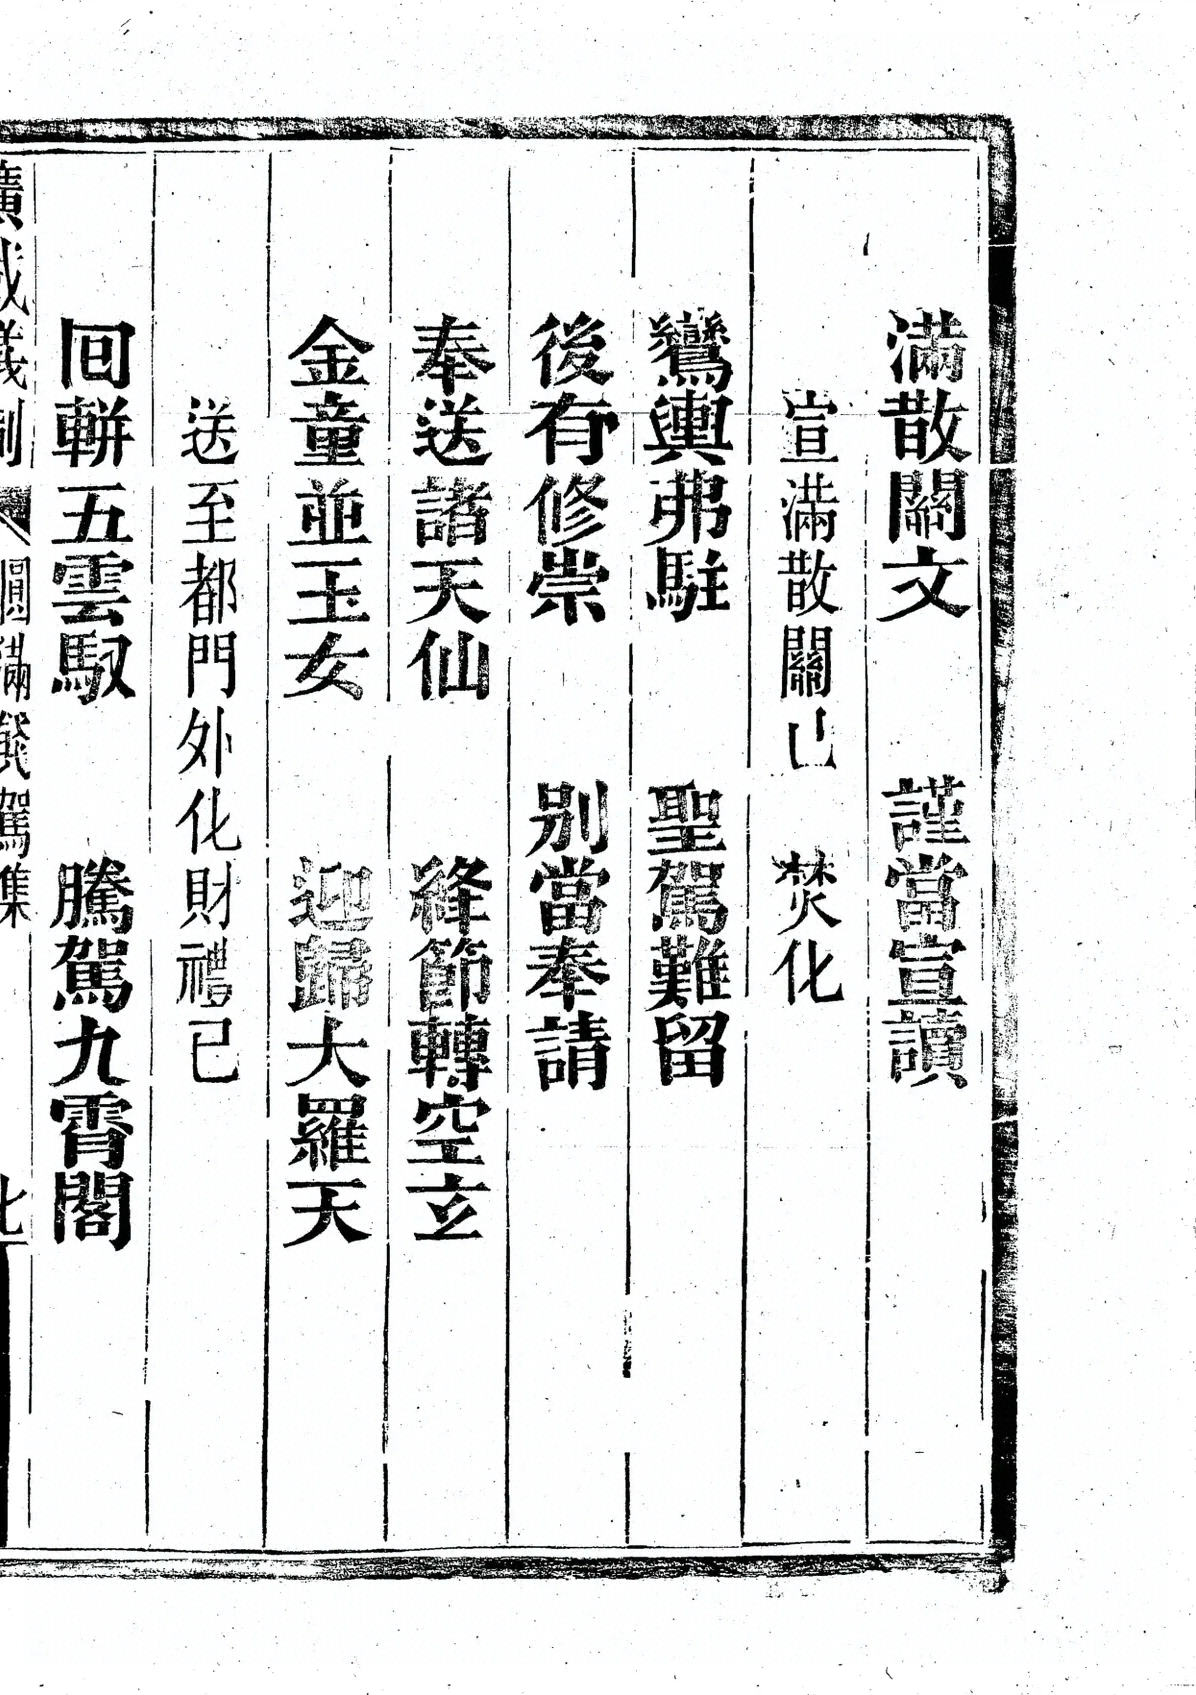 滿散關文　謹當宣讀
宣滿散關已　焚化
鸞輿弗駐　聖駕難留
後有修崇　別當奉請
奉送諸天仙　絳節轉空玄
金童並玉女　迎歸大羅天
送至都門外化財禮已
囘軿五雲馭　騰駕九霄閣
廣成儀制　圓滿餞駕集